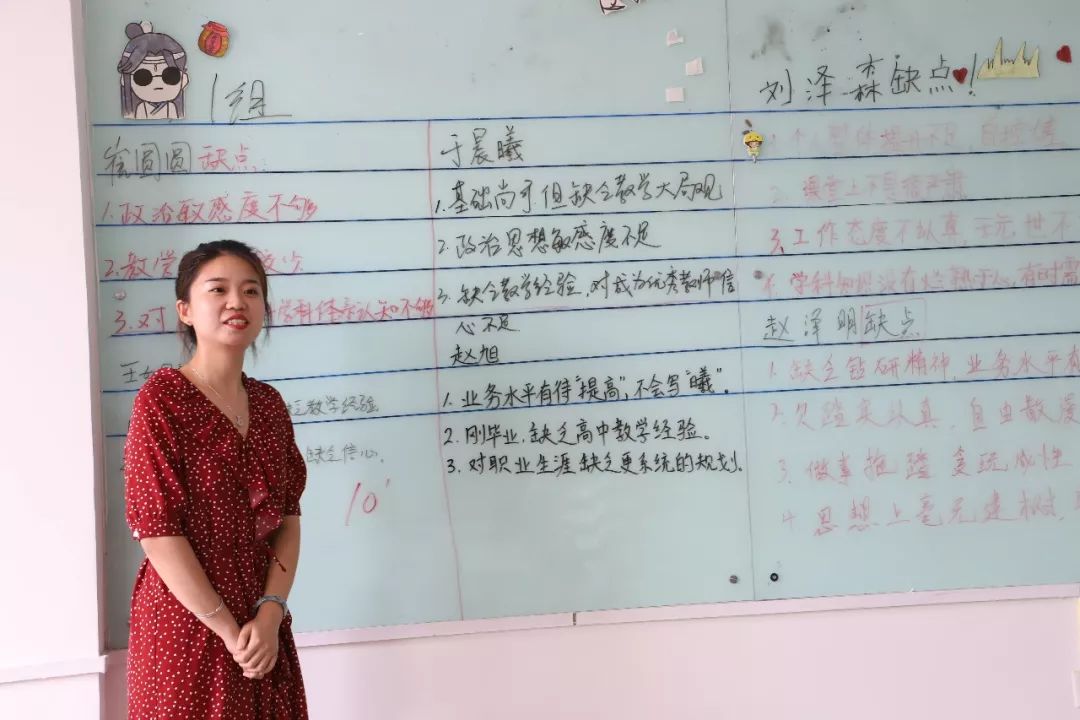 1组
崔圆圆缺点
1.政治敏感度不够
2.教学
3.对 学科体系认知不够
王
教学经验
缺乏信心.
10'
于晨曦
1.基础尚可但缺乏教学大局观
2.政治思想敏感度不足
3.缺乏教学经验,对成为优秀教师信
心不足
赵旭
1.业务水平有待"提高",不会写"曦".
2.刚毕业,缺乏高中教学经验。
3.对职业生涯缺乏更系统的规划.
刘泽森缺点!
1.个人整体提升不足,
2.课堂上不
3.工作态度不认真,
4.学科知识没有烂熟于心,有时需
赵泽明缺点
1.缺乏钻研精神,业务水平有
2.欠踏实认真,自由散漫
3.做事拖踏,
4.思想上毫无建树,